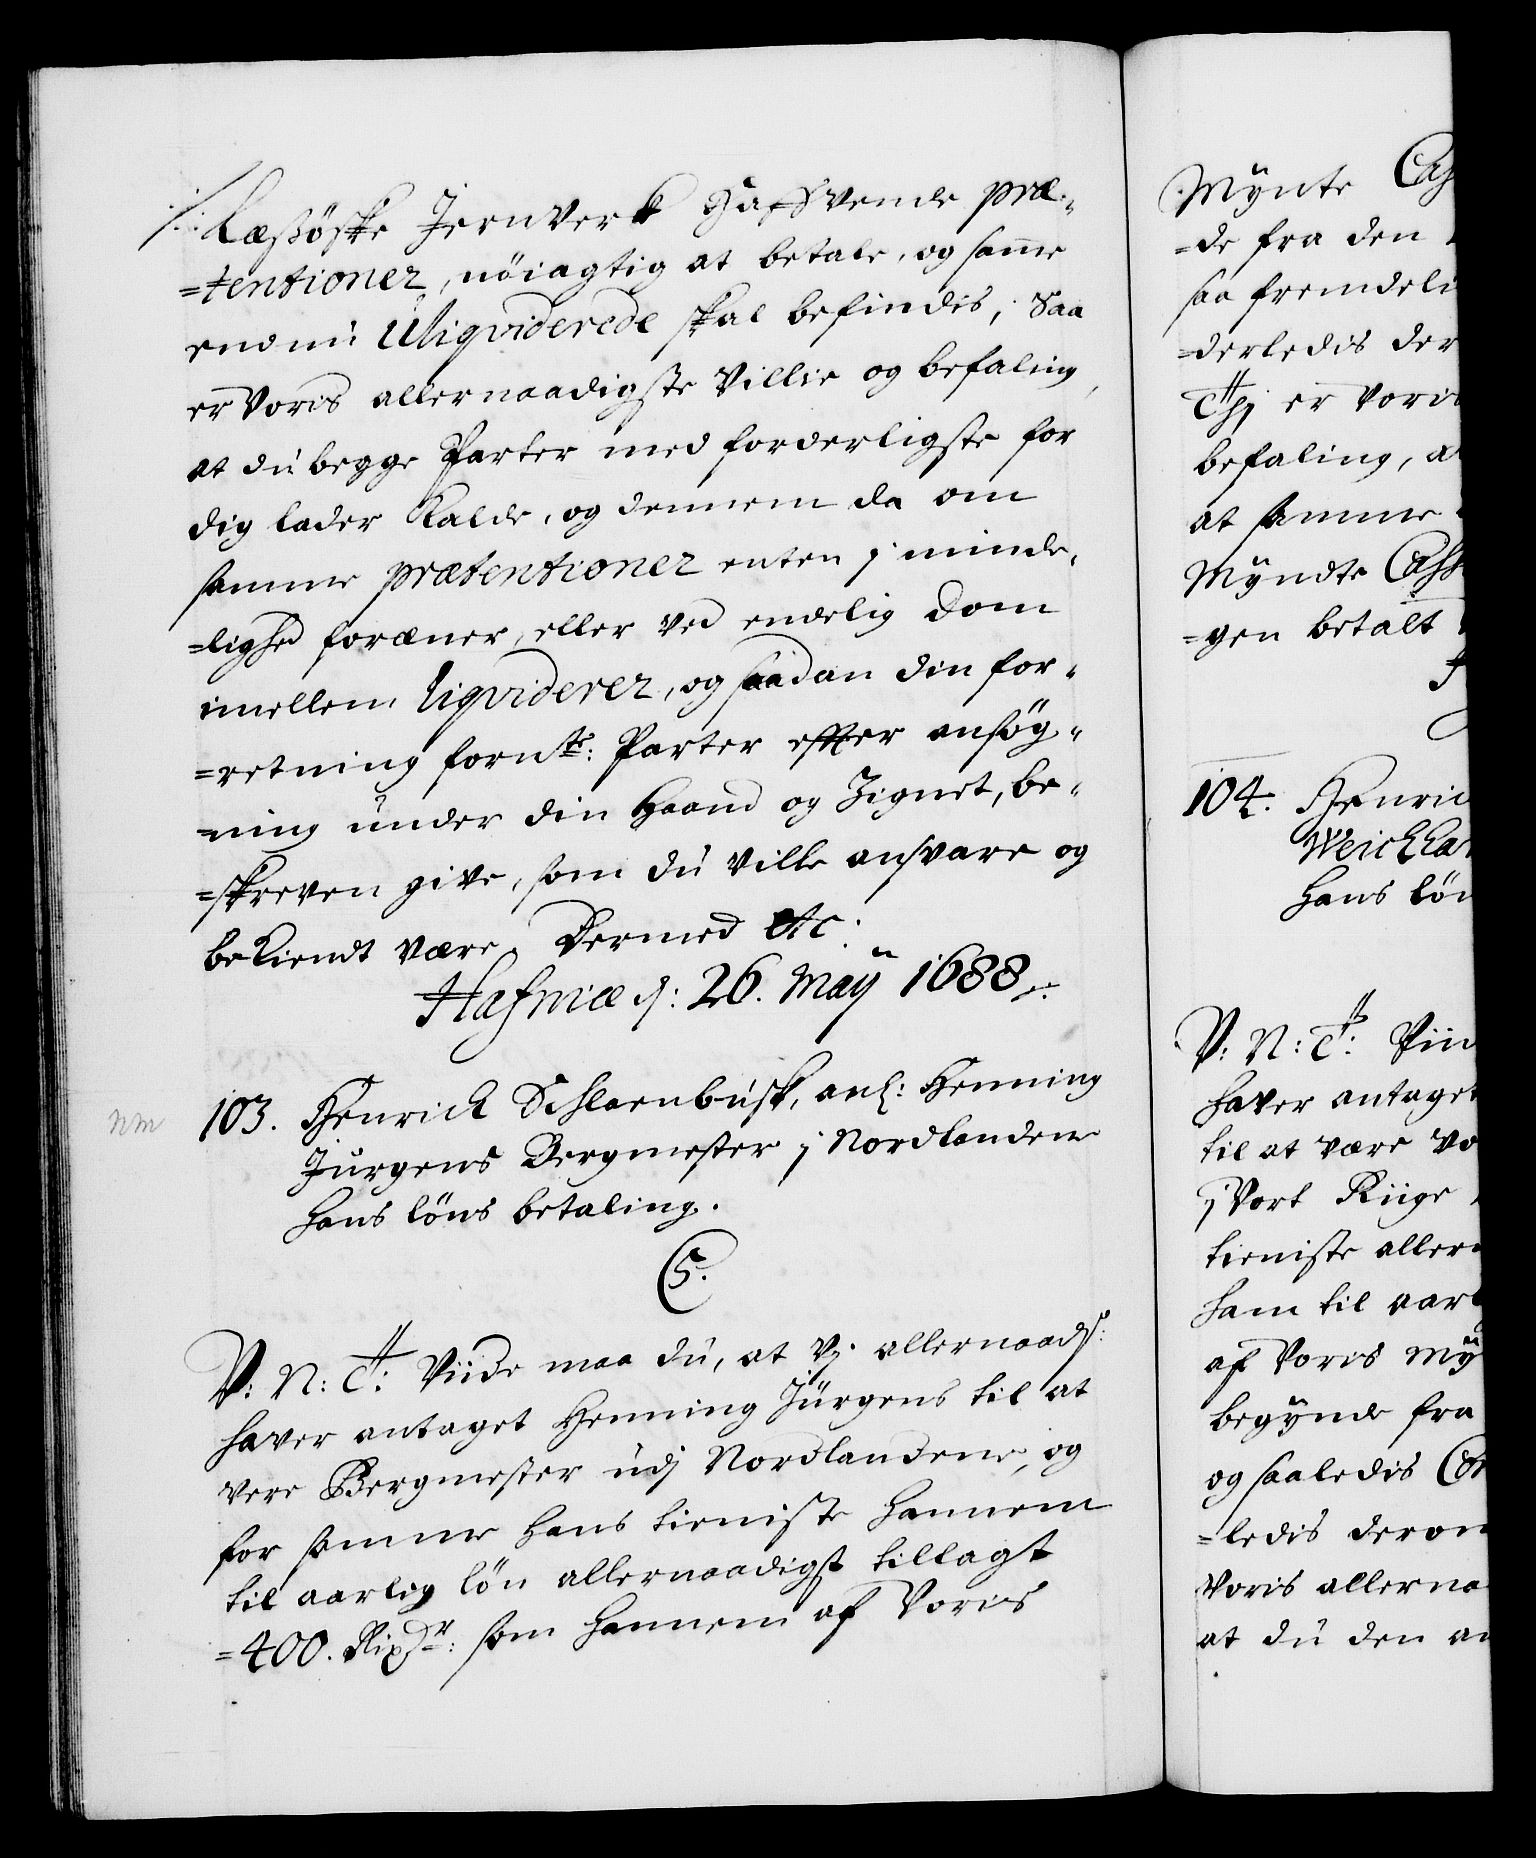 /: Læsøske Jernverk hafvende præ„
=tentioner, nöiagtig at betale, og samme
endnu Uliqviderede skal befindis; Saa
er Voris allernaadigste Villie og befaling,
at du begge Parter med forderligste for
dig lader Kalde, og dennem da om
samme prætentioner enten j minde„
=lighed foræner, eller ved endelig Dom
imellem liqviderer, og saadan din for„
=retning fornte: Parter effter ansøg„
=ning under din Haand og Zignet, be„
=skreven give, som du ville ansvare og
bekiendt være, Dermed etc:
Hafniæ d: 26. Maÿ 1688 ./.
nm
103. Henrick Schlaenbusk, anl: Henning
Jürgens Bergmester j Nordlandene
hans löns betaling.
C5.
V: N: Ct: Viide maa du, at Vj allernaadst:
haver antaget Henning Jürgens til at
vere Bergmester udj Nordlandene, og
for samme hans tieniste hannem
til aarlig lön allernaadigst tillagt
=400. Rixdr: som hannem af Voris
Mynte Cas
=de fra den
saa fremdeli
=derledis der
Thj er Voris
befaling, a
at samme
Myndte Cass
=gen betalt
104. Henric
Weickhar
hans lön
V: N: Ct: Viid
haver antaget
til at være vo
j Vort Riige
tieniste allern
ham til aarl
af Voris Mÿ
begynde fra
og saaledis Con
=ledis derom
Voris allerna
at du den an